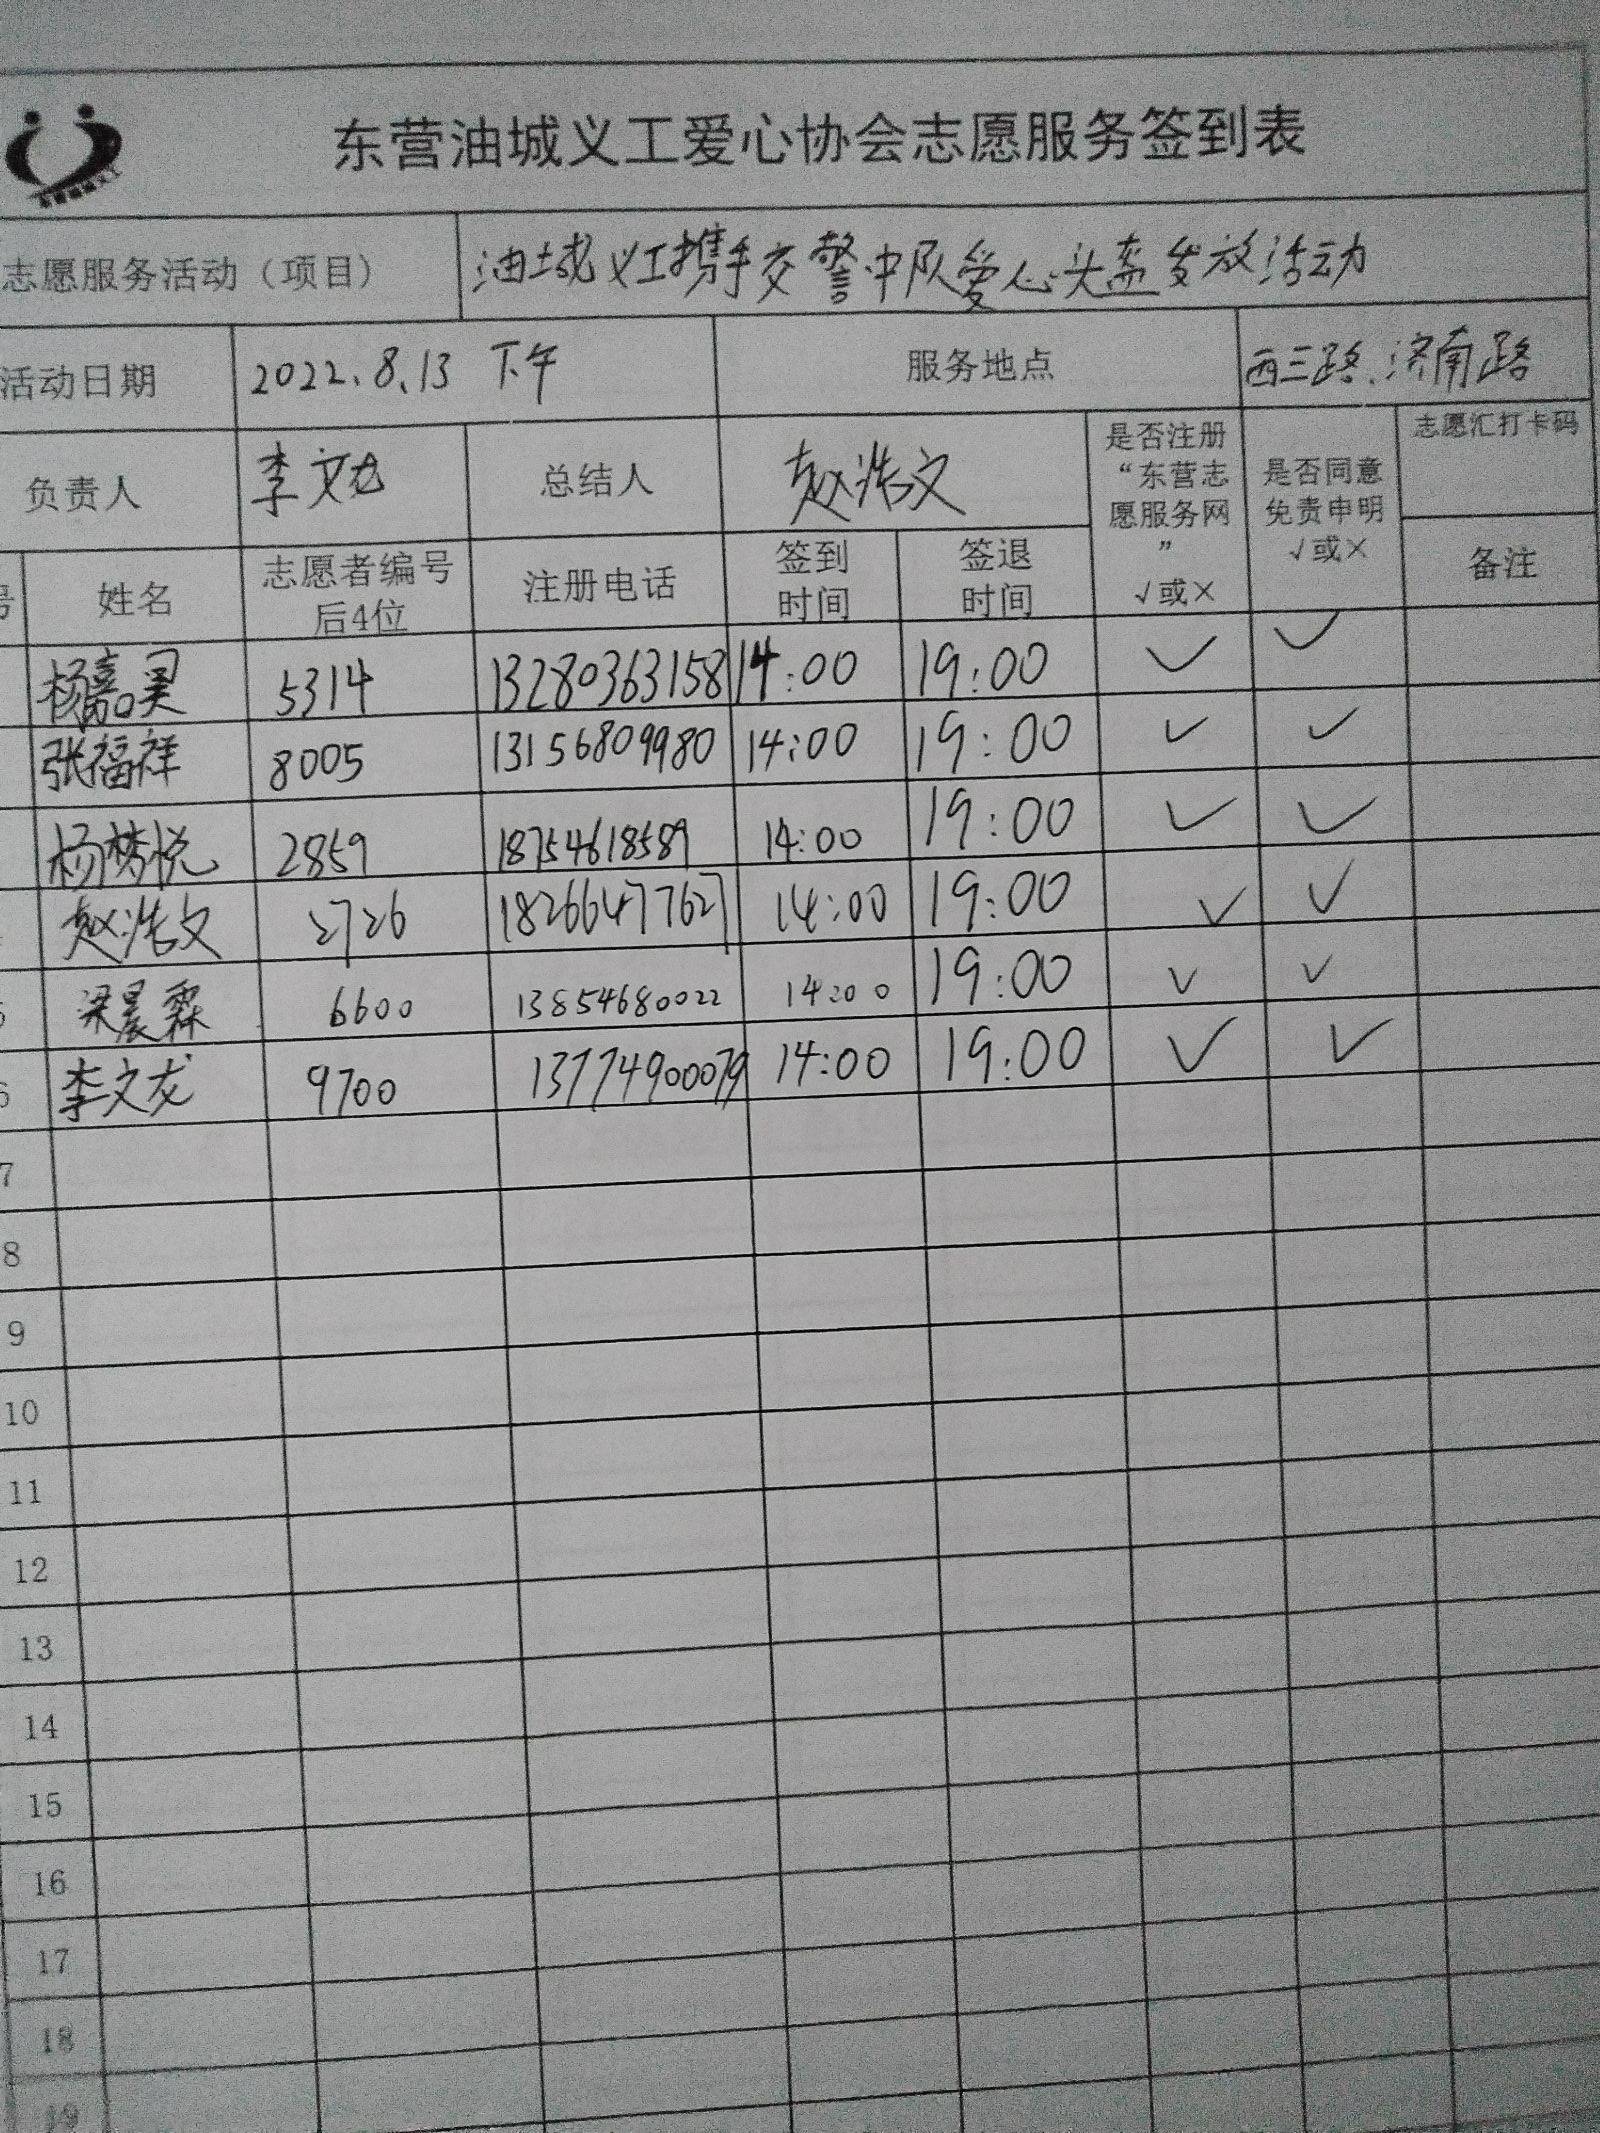 东营油城义工爱心协会志愿服务签到表
志愿服务活动（项目） 油城义工携手交警中队爱心头盔发放活动
活动日期 2022.8.13 下午 服务地点 西三路、济南路
负责人 李文龙 总结人 赵浩文 是否注册“东营志愿服务网” √或× 是否同意免责申明 √或× 志愿汇打卡码
号 姓名 志愿者编号后4位 注册电话 签到时间 签退时间 备注
杨嘉昊 5314 13280363158 14:00 19:00 ✓ ✓
张福祥 8005 13156809980 14:00 19:00 ✓ ✓
杨梦悦 2859 18754618589 14:00 19:00 ✓ ✓
赵浩文 2726 18266477627 14:00 19:00 ✓ ✓
5 梁晨霖 6600 13854680022 14:00 19:00 ✓ ✓
6 李文龙 9700 13774900079 14:00 19:00 ✓ ✓
7
8
9
10
11
12
13
14
15
16
17
18
19